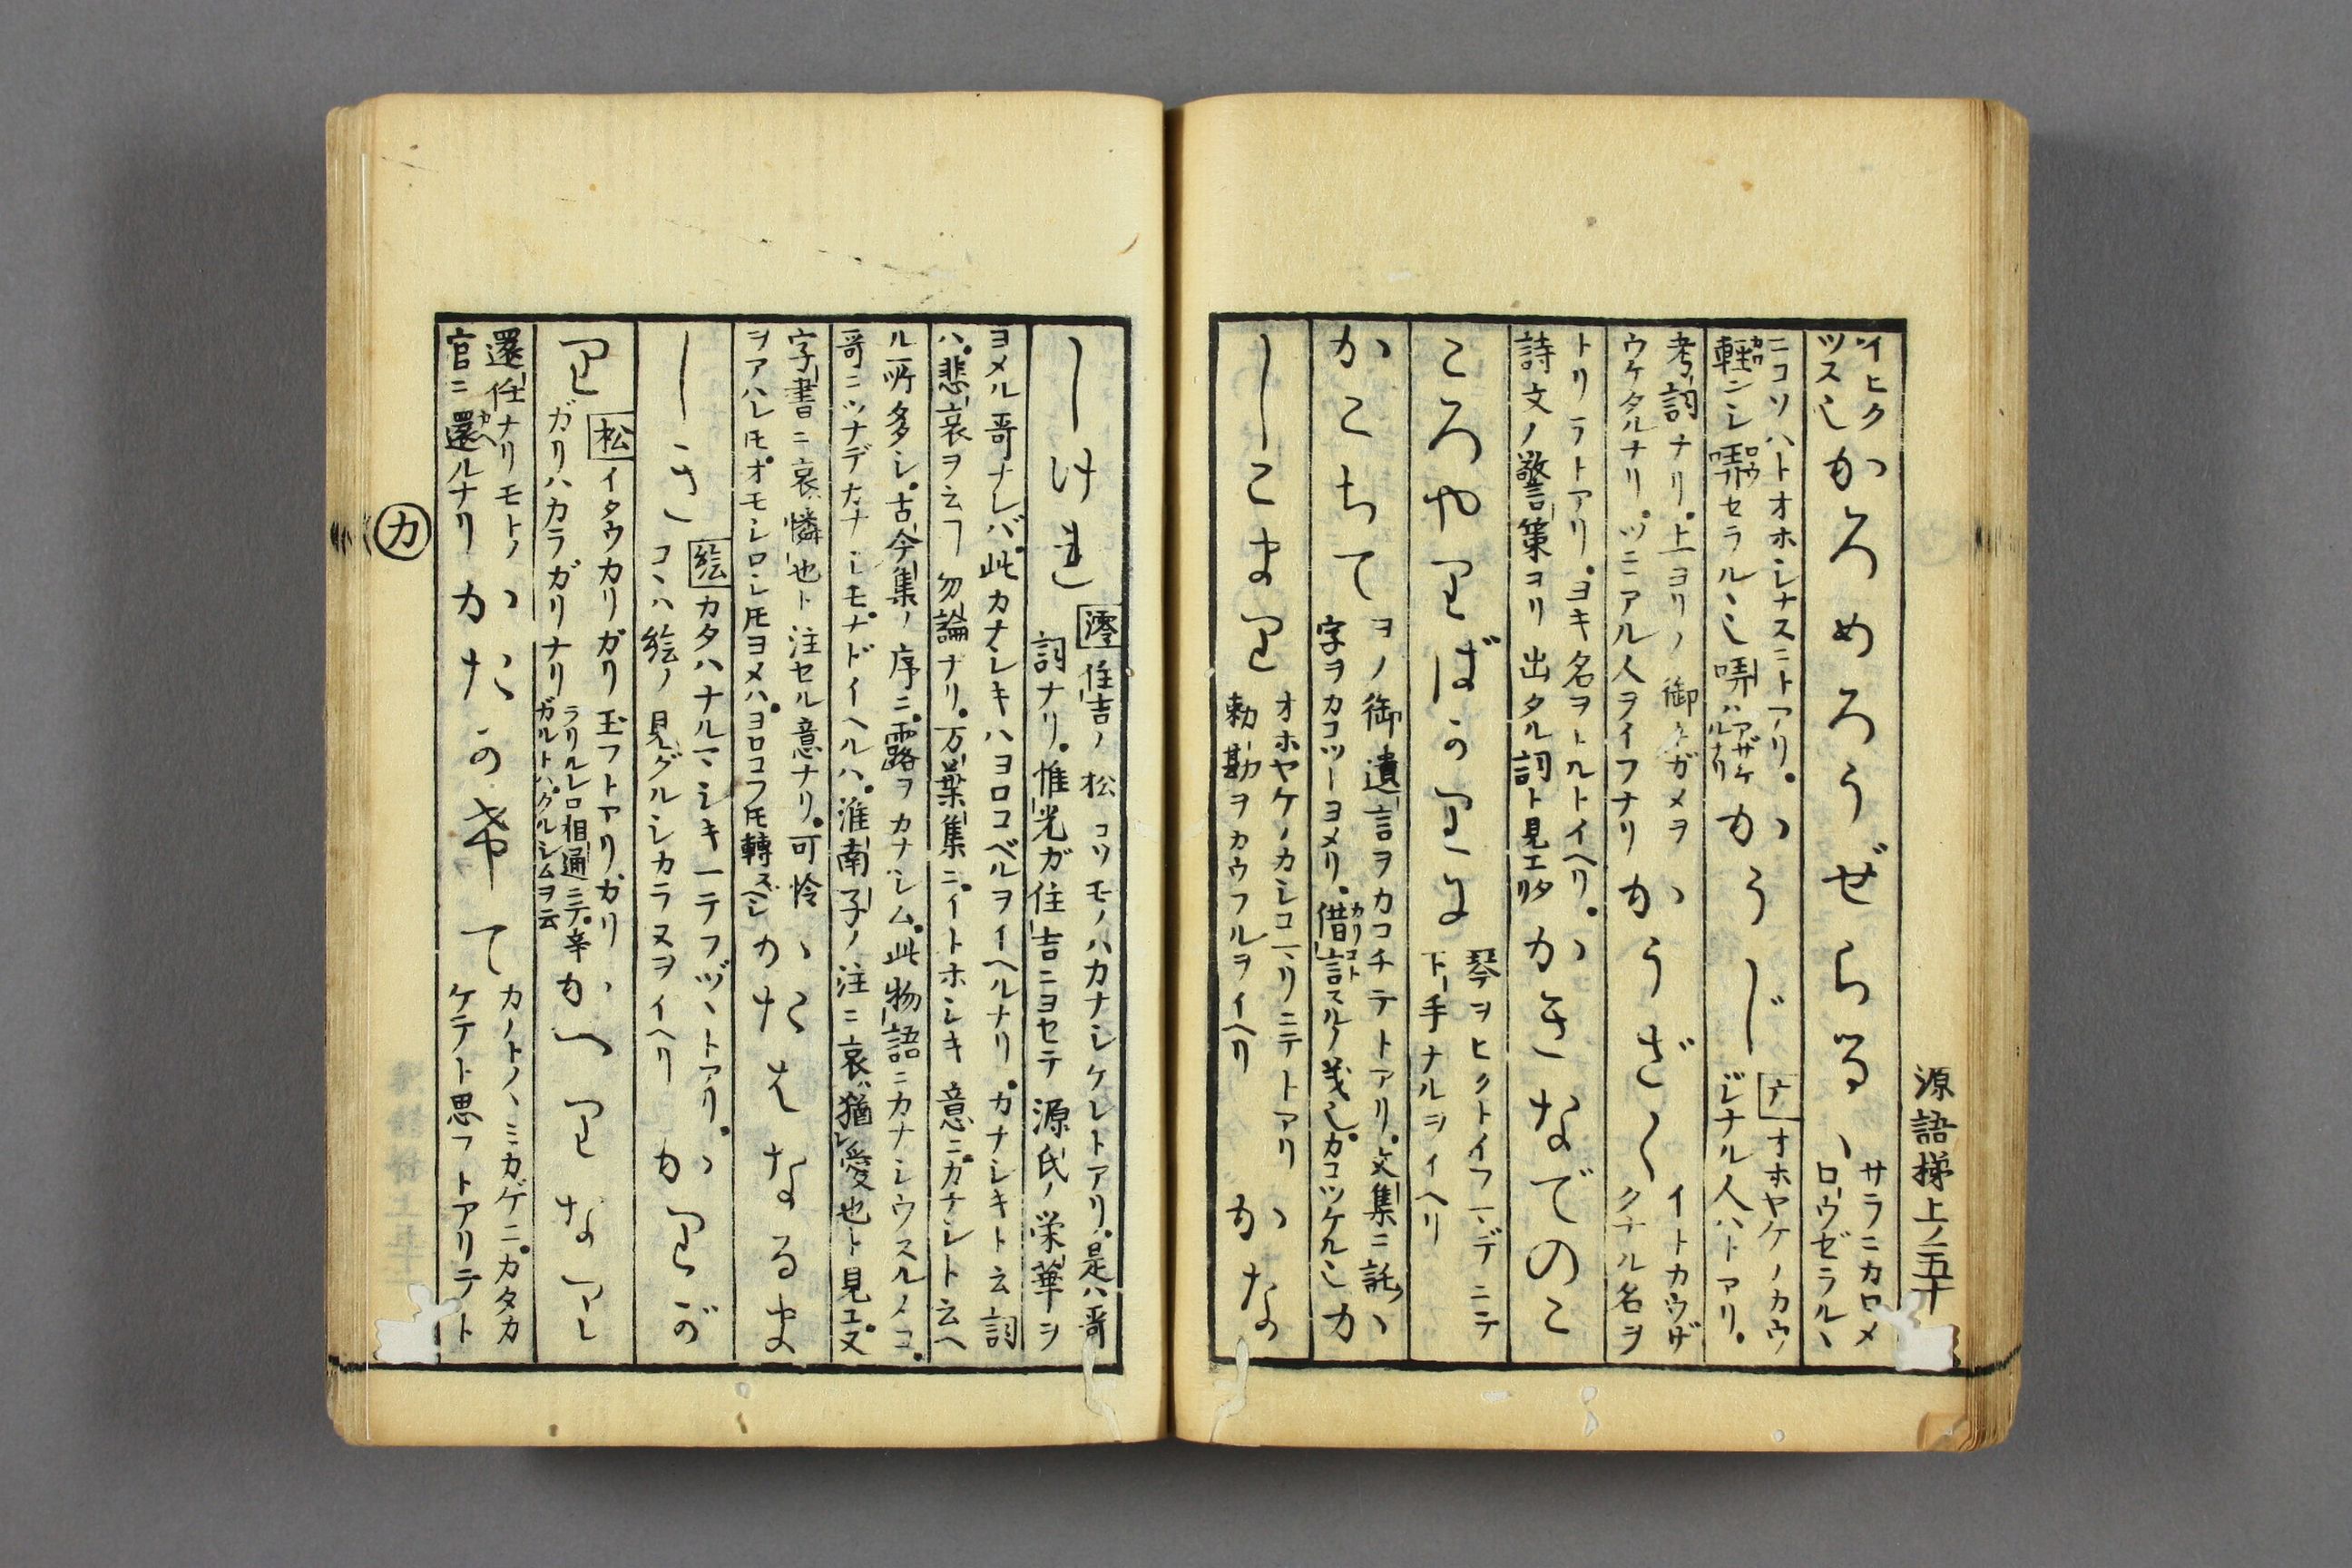 源語梯上ノ五十
イヒク
ツスし
かろめろうぜらるゝ
サラニカロメ
ロウゼラルヽ
ニコソハトオホシナスニトアリ。
軽ンシ哢セラルヽし哢ハアザケルナリ
かうじ
ナ オホヤケノカウ
ジナル人ハトアリ。
考詞ナリ。上ヨリノ御トガメヲ
ウケタルナリ。ツニアル人ヲイフナリ
かうざく
イトカウザ
クナル名ヲ
トリテトアリ。ヨキ名ヲトルトイヘリ。
詩文ノ警策ヨリ出タル詞ト見エタリ
かきなでのこ
ころやりばかりに
琴ヲヒクトイフ一デニテ
下手ナルヲイヘリ
かこちて
ヲノ御遺言ヲカコチテトアリ。文集ニ託ノ
字ヲカコツトヨメリ。借言スルノ義し。カコツケルし
かしこまり
オホヤケノカシコマリニテトアリ
勅勘ヲカウフルヲイヘリ
かなしけれ
澪 住吉ノ松コソモノハカナシケレトアリ。是ハ哥
詞ナリ。惟光ガ住吉ニヨセテ源氏ノ栄華ヲ
ヨメル哥ナレバ。此カナシキハヨロコベルヲイヘルナリ。カナシキト云詞
ハ。悲哀ヲ云フ勿論ナリ。万葉集ニ。イトホシキ意ニ。カナシト云ヘ
ル所多シ。古今集ノ序ニ。露ヲカナシム。此物語ニカナシウスルメコ。
哥ニツナデカナシモ。ナドイヘルハ。淮南子ノ注ニ哀ハ猶愛也ト見エ又。
字書ニ哀ハ憐也ト注セル意ナリ。可怜
ヲアハレ𪜈。オモシロシ𪜈ヨメハ。ヨロコフ𪜈轉スベシ
かたはなるましき
絵 カタハナルマシキ一テフヅヽトアリ。
コヽハ絵ノ見グルシカラヌヲイヘリ
かりがり
松 イタウカリガリ玉フトアリ。カリ
ガリハカラガリナリ
ラリルレロ相通ニテ。辛
ガルトハ。クルシムヲ云
かへりなりし
還任ナリモトノ
官ニ還ルナリ
かたのきて
カノトノヽミカゲニ。カタカ
ケテト思フトアリテト
カ